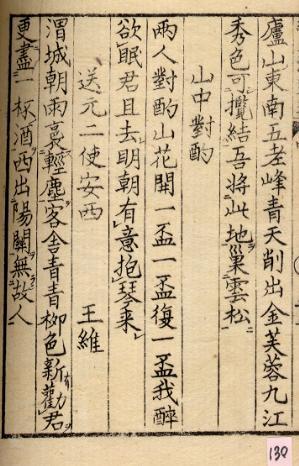 廬山東南五老峰青天削出金芙蓉九江
秀色可攬結吾將此地巢雲松
山中對酌
兩人對酌山花開一盃一盃復一盃我醉
欲眠君且去明朝有意抱琴來
送元二使安西 王維
渭城朝雨裛輕塵客舍青青柳色新勸君
更盡一杯酒西出陽關無故人
130